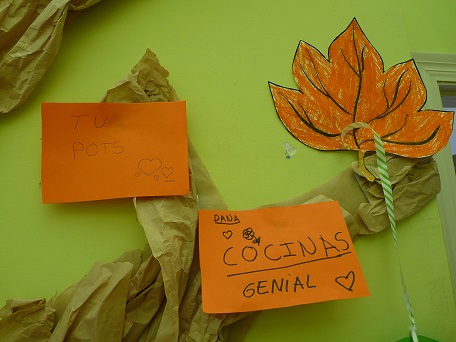 TU
POTS
DANA
COCINAS
GENIAL